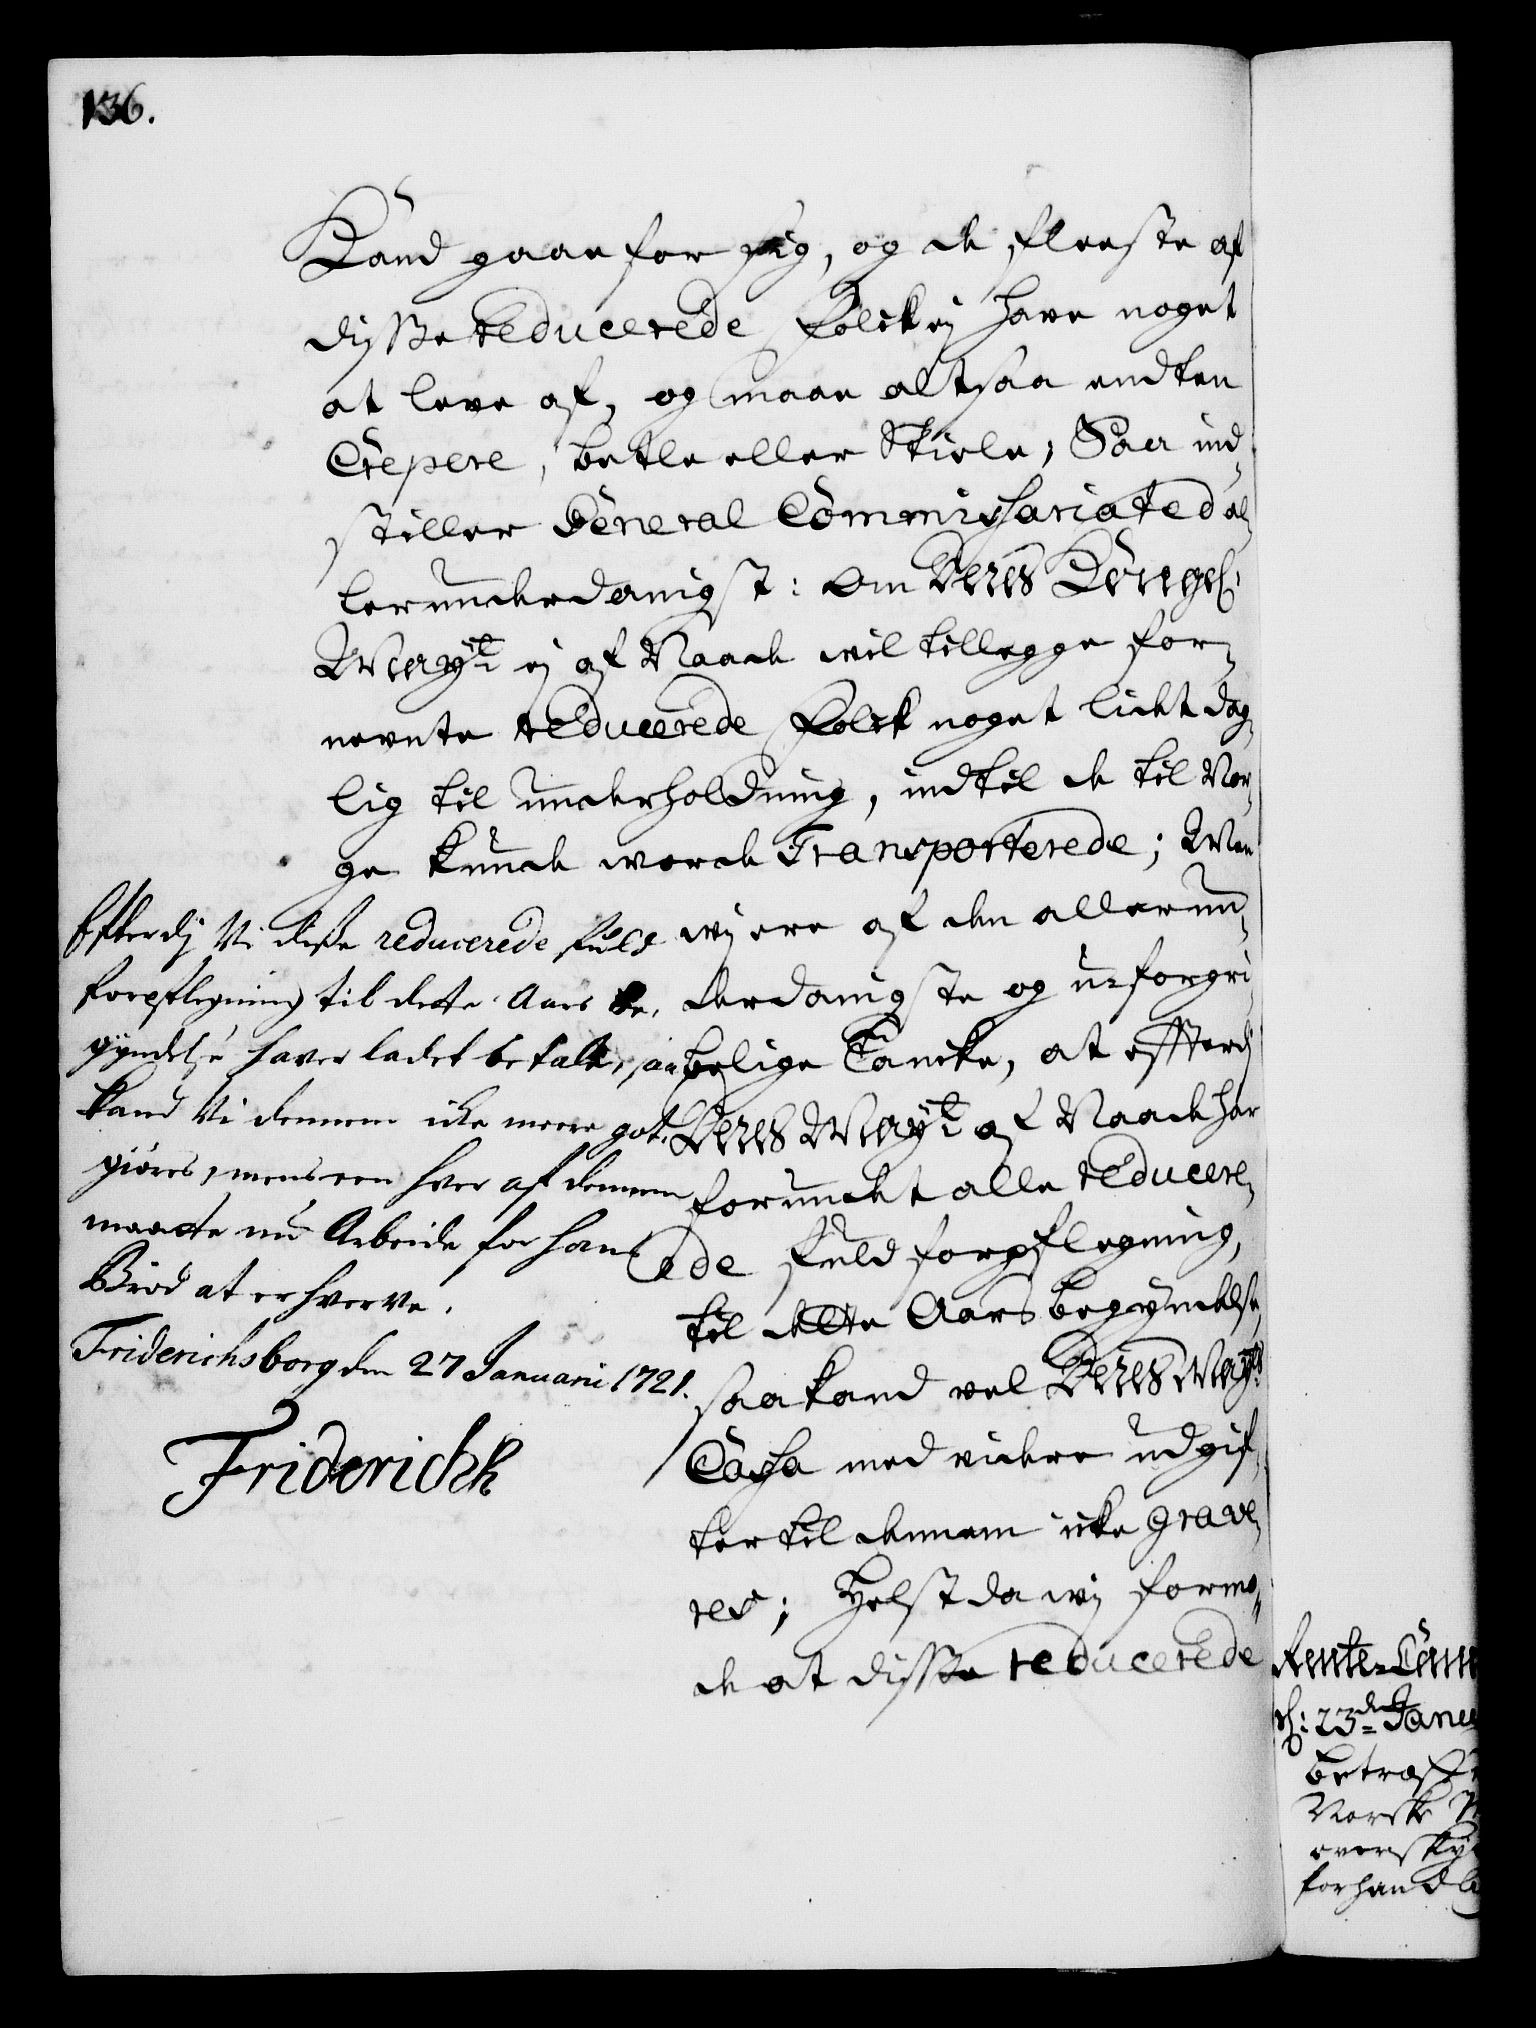 136.
Kand gaae for sig, og de fleeste af
disse reducerede folck ej have noget
at leve af, og maae altsaa endten
Crepere, betle eller Stiele; Saa ind-
stiller General Commissariated al-
lerunderdanigst: Om Deres Kongel:
Mayt: ej af Naade vil tillegge for-
nevnte reducerede folck noget lidet dag-
lig til underholdning, indtil de til Nor-
ge kunde worde Transporterede; Men
wj ere af den allerun-
derdanigste og u-forgri-
belige Tancke, at effterdj
Deres Mayt: af Naade har
forundt alle reducere-
de fuld forpflegning,
til dette Aars begyndelse,
saa kand vel Deres Mayts
Cassa med videre udgif-
ter til dennem icke grave-
res; Helst da wj formo-
de at disse reducerede
Efterdj Vi disse reducerede fuld
forpflegning til dette Aars be-
gyndelse haver ladet betale, saa
kand Vi dennem icke meere got-
giøres, mens een hver af dennem
maatte nu Arbeide for hans
Brød at erhverve.
Friderichsborg den 27 Januarii 1721.
Friderich
Rente-Cam
d: 23de Janu
betræf
Norske
oversky
forhandl